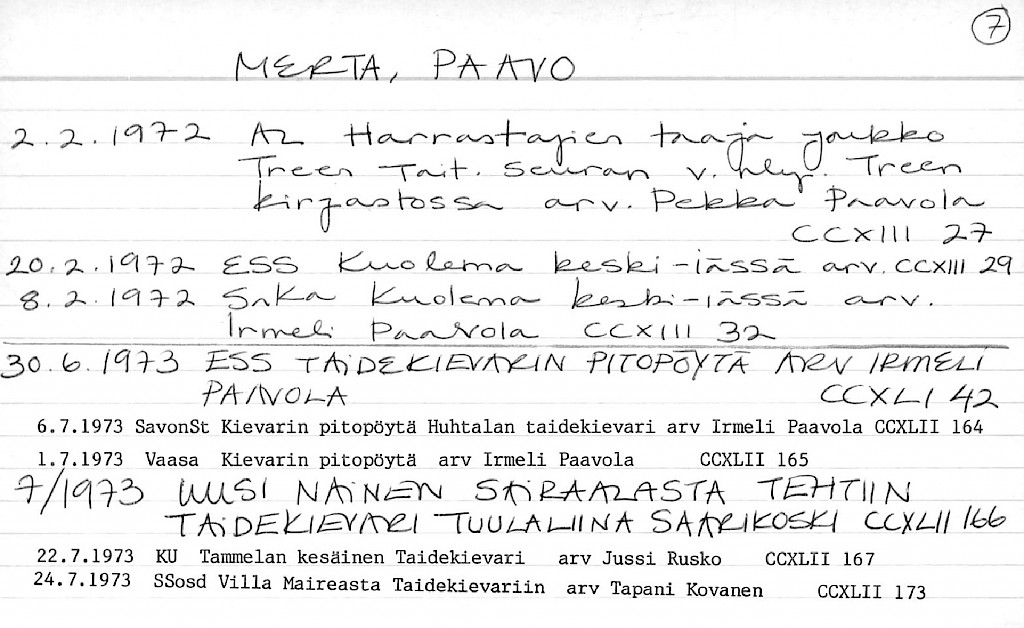 7
MERTA, PAAVO
2.2.1972 AL Harrastajien taaja joukko
Treen Tait. seuran v. nlyr. Treen
kirjastossa arv. Pekka Paavola
CCXIII 27
20.2.1972 ESS Kuolema keski-iässä arv. CCXIII 29
8.2.1972 SaKa Kuolema keski-iässä arv.
Irmeli Paavola CCXIII 32
30.6.1973 ESS TAIDEKIEVARIN PITOPÖYTÄ ARV IRMELI
PAAVOLA CCXLI 42
6.7.1973 SavonSt Kievarin pitopöytä Huhtalan taidekievari arv Irmeli Paavola CCXLII 164
1.7.1973 Vaasa Kievarin pitopöytä arv Irmeli Paavola CCXLII 165
7/1973 UUSI NAINEN SAIRAALASTA TEHTIIN
TAIDEKIEVARI TUULALIINA SAARIKOSKI CCXLII 166
22.7.1973 KU Tammelan kesäinen Taidekievari arv Jussi Rusko CCXLII 167
24.7.1973 SSosd Villa Maireasta Taidekievariin arv Tapani Kovanen CCXLII 173